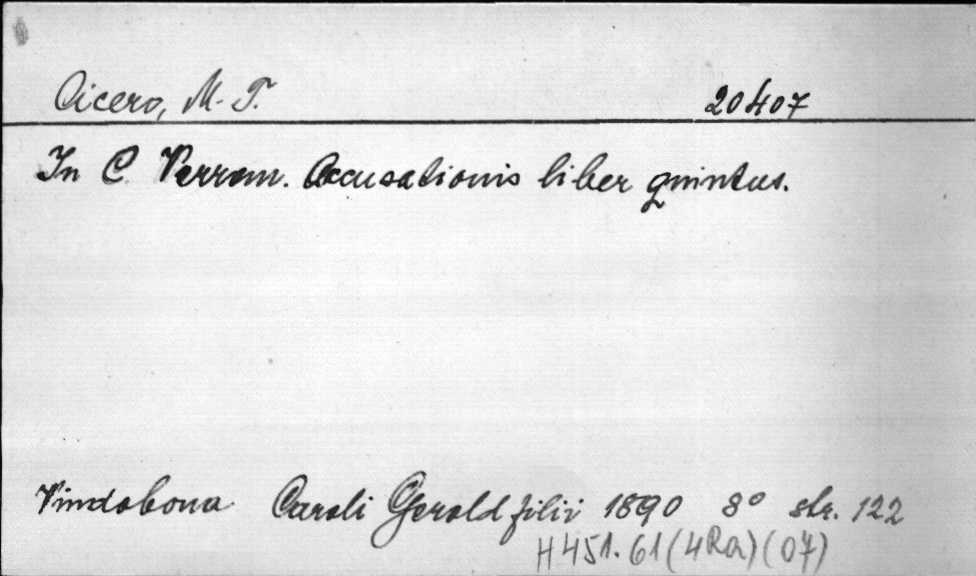 Cicero, M. T. 20407
In C. Verrem. Accusationis liber quintus.
Vindobona Caroli Gerold filii 1890 8° str. 122
H 451.61 (4Ra) (07)